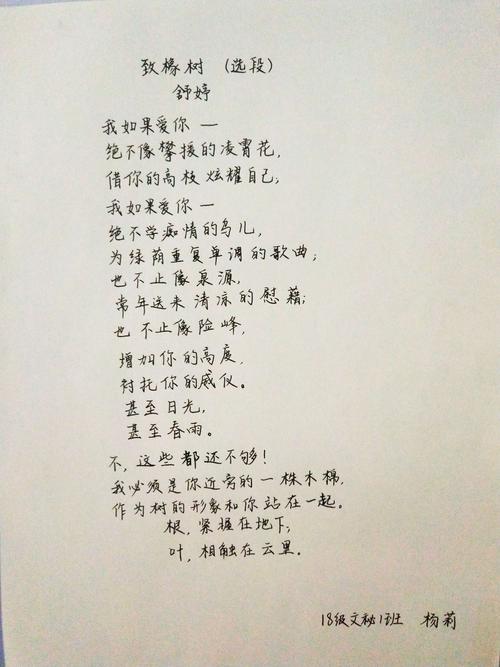 致橡树（选段）
舒婷
我如果爱你 —
绝不像攀援的凌霄花，
借你的高枝炫耀自己；
我如果爱你 —
绝不学痴情的鸟儿，
为绿荫重复单调的歌曲；
也不止像泉源，
常年送来清凉的慰藉；
也不止像险峰，
增加你的高度，
衬托你的威仪。
甚至日光，
甚至春雨。
不，这些都还不够！
我必须是你近旁的一株木棉，
作为树的形象和你站在一起。
根，紧握在地下；
叶，相触在云里。
18级文秘1班 杨莉